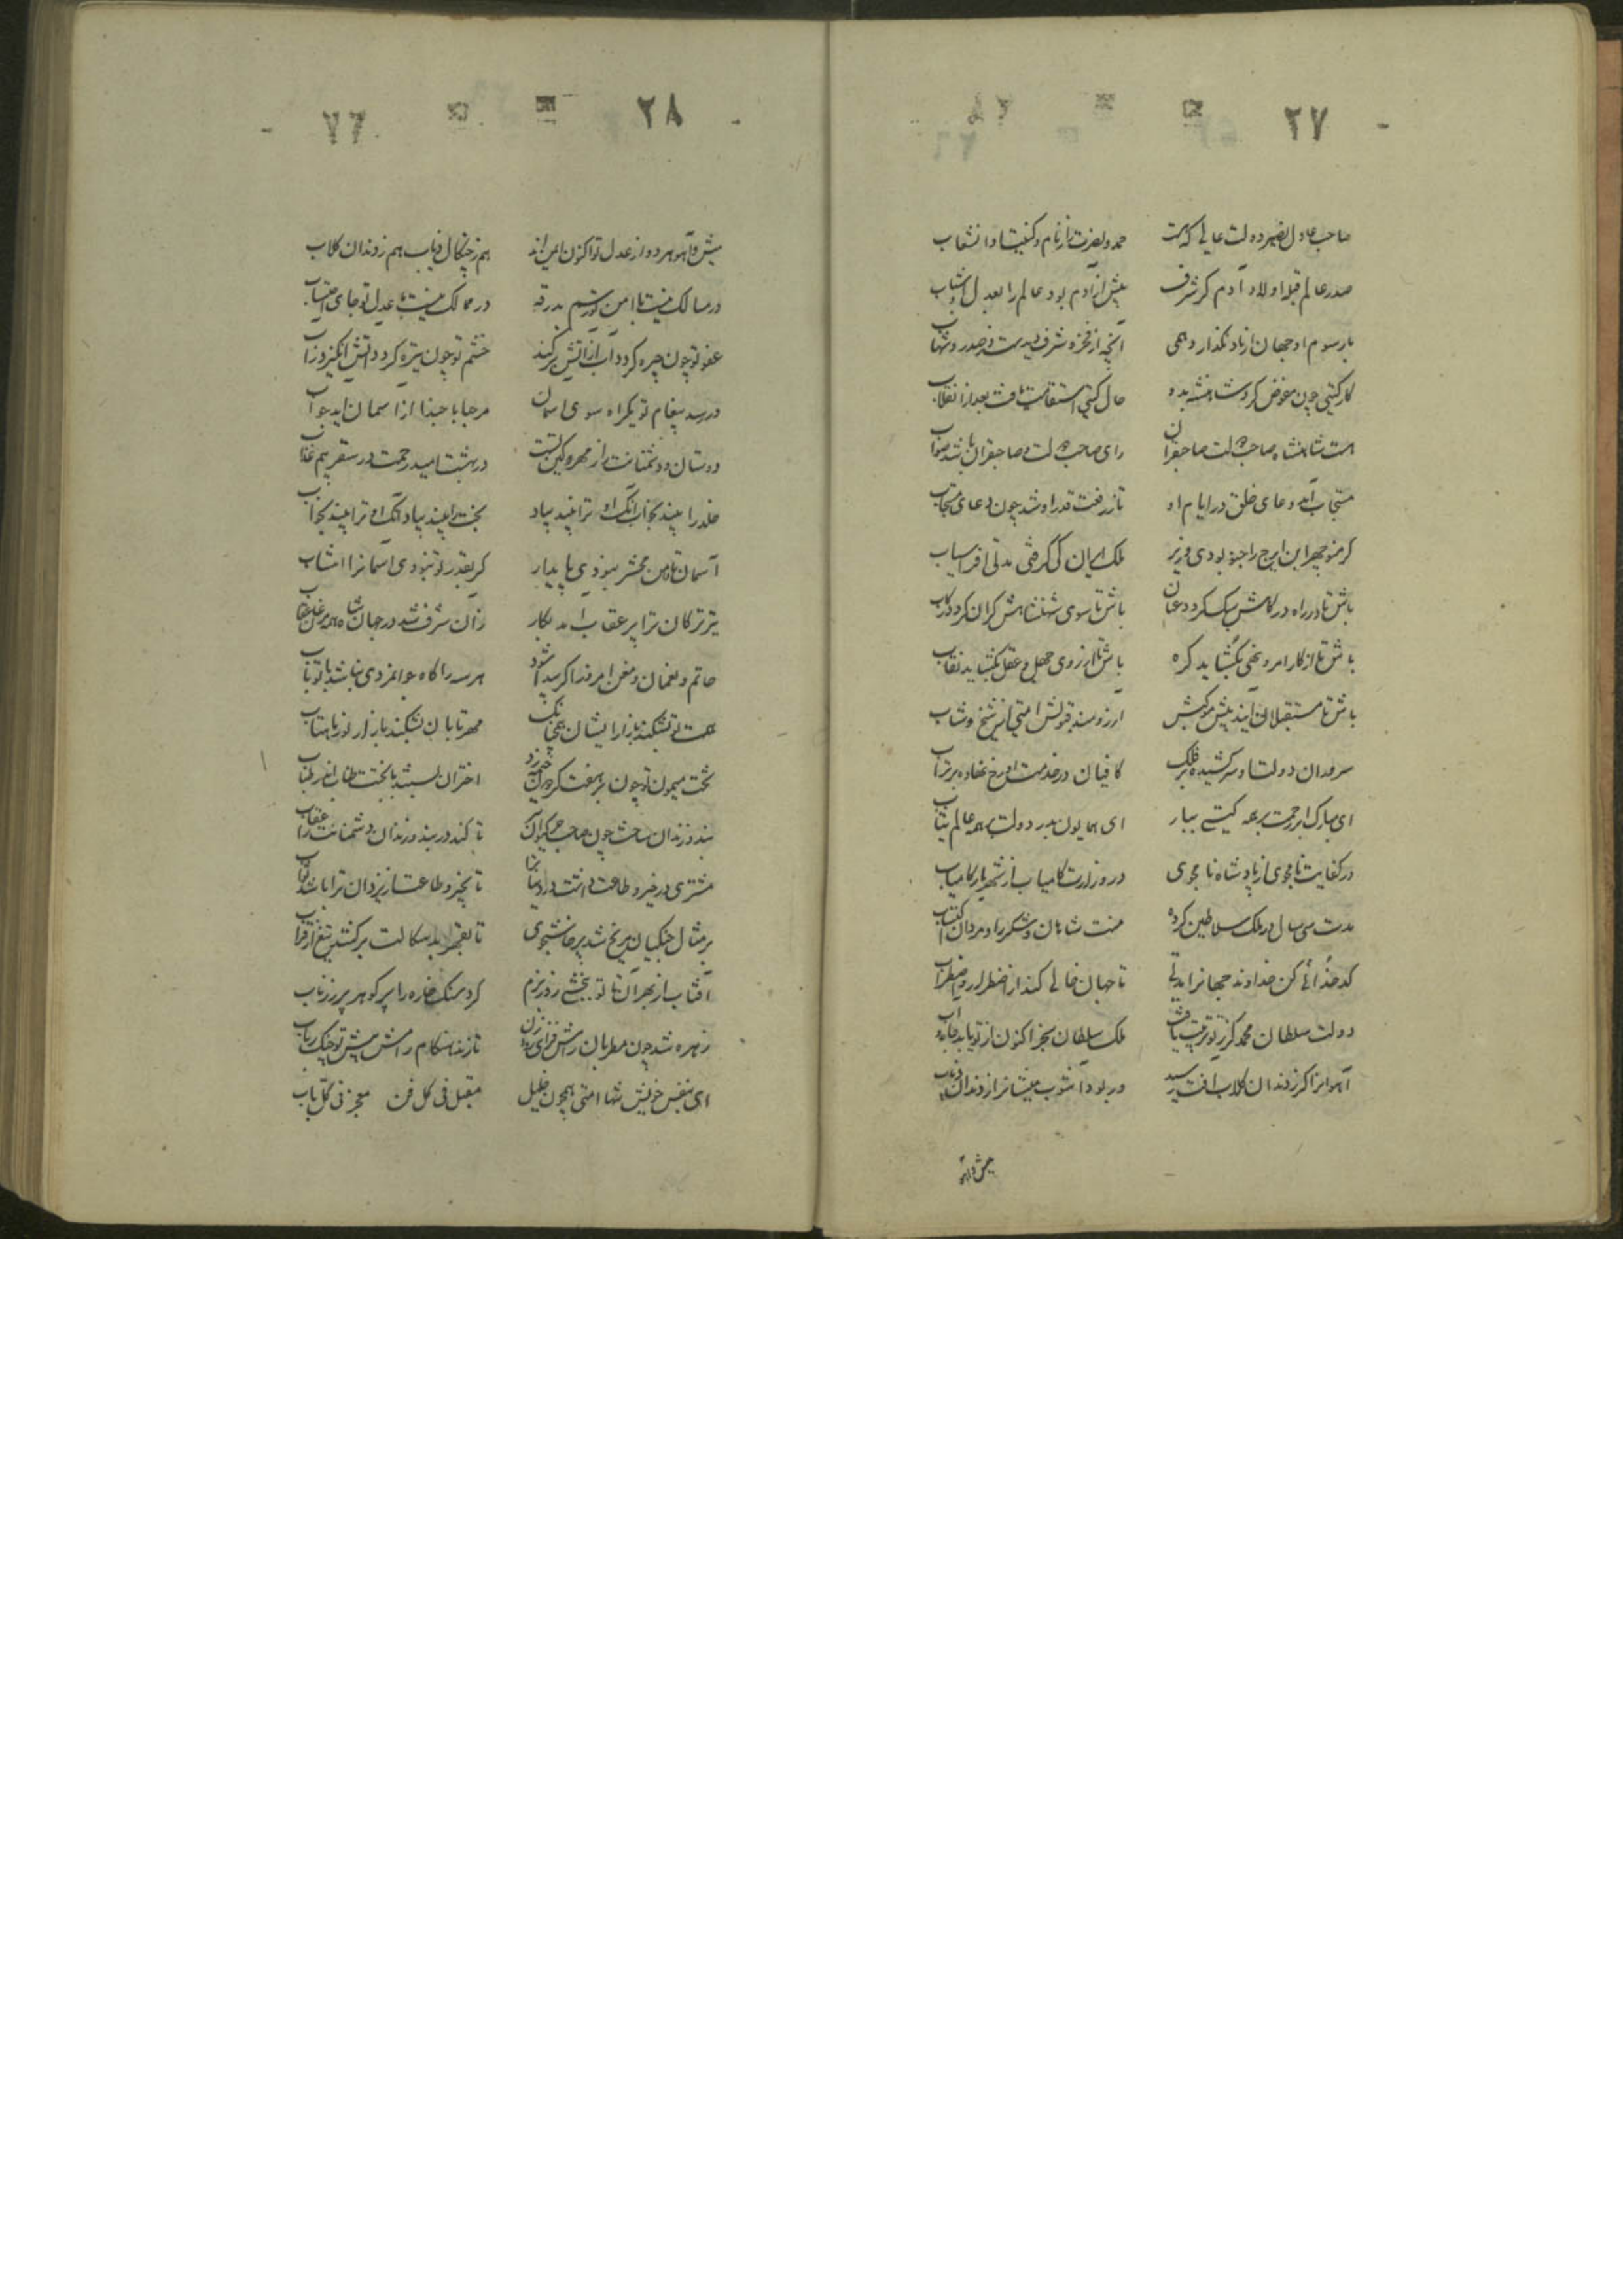 ۲۷
صاحب عادل نصیر دولت عالی که هست حمد و نصرت از نام و کنیت او انشعاب
صدر عالم قبله اولاد آدم کز شرف پیش از آدم بود عالم را بعدل
با رسوم او جهان از یاد نگذارد همی آنچه از فخر و شرف دیدست
کار گیتی چون مفوض کرد شاهنشه بدو حال گیتی استقامت یافت بعد از انقلاب
هست شاهنشاه صاحب دولت صاحبقران رای صاحب دولت و صاحبقران باشد صواب
مستجاب آمد دعای خلق در ایام او تا ز رفعت قدر او شد چون دعای مستجاب
گر منوچهر ابن ایرج را چنو بودی وزیر ملک ایران کی گرفتی مدتی افراسیاب
باش تا در راه در کامش سبک گردد عنان باش تا سوی شهنشاهش گران گردد رکاب
باش تا از کار امر و نهی بگشاید گره باش تا از روی جهل و عقل بگشاید نقاب
باش تا مستقبلان آیند پیش موکبش آرزومند قبولش امتی از شیخ و شاب
سروران دولت او سر کشیده بر فلک کافیان در خدمت او رخ نهاده بر تراب
ای مبارک ابر رحمت بر همه گیتی ببار ای همایون بدر دولت بر همه عالم بتاب
در کفایت نامجوی از پادشاه نامجوی در وزارت کامیاب از شهریار کامیاب
مدت سی سال در ملک سلاطین کرده همت شاهان و لشکر را و مردان اکتساب
کدخدائی کن خداوند جهانرا مدتی تا جهان خالی کند از اضطرار و اضطراب
دولت سلطان محمد کز تو ترتیب یافت ملک سلطان سنجر اکنون از تو یابد جاه و آب
آهوانرا گر ز دندان کلاب آفت رسید ور بود آشوب میشانرا ز دندان ذئاب
میش و آهو
۲۸
میش و آهو هر دو از عدل تو اکنون ایمن‌اند هم ز چنگال ذئاب هم ز دندان کلاب
در مسالک نیست با امن تو رسم بدرقه در ممالک نیست با عدل تو جای احتساب
عفو تو چون چیره گردد آب از آتش بر کند خشم تو چون تیره گردد آتش انگیزد ز آب
در رسد پیغام تو یکراه سوی آسمان مرحبا با حبذا از آسمان آید جواب
دوستان و دشمنانت از مهر و کین تست در بهشت امید رحمت در سقر بیم عذاب
خلد را بیند بخواب آنک او ترا بیند بیاد بخت را بیند بیاد آنک او ترا بیند بخواب
آسمان تا دامن محشر نبودی پایدار گر بقدر تو نبودی آسمانرا انتساب
تیر ترکان ترا پر عقاب آمد بکار زان شرف شد در جهان شاه همه مرغان عقاب
حاتم و نعمان و معن امروز اگر پیدا شود هر سه را گاه جوانمردی نباشد با تو تاب
همت تو نشکند بازار ایشان همچنانک مهر تابان نشکند بازار نور ماهتاب
بخت میمون تو چون بر هفت گردون خیمه زد اختران بستند با بختت طناب اندر طناب
بند و زندان ساخت چون صاحب جرم کیوان تا کند در بند و زندان دشمنانت را عقاب
مشتری در خیر و طاعت داشت تا بخیر و طاعت از یزدان ترا باشد ثواب
بر مثال جنگیان مریخ شد پرخاشجوی تا بقهر بدسگالت بر کشد تیغ از قراب
آفتاب از بهر آن تا تو ببخشی روز بزم کرد سنگ خاره را پر گوهر پر زر ناب
زهره شد چون مطربان رامش فزای رود زن تا زند هنگام رامش پیش تو چنگ و رباب
ای بنفس خویش تنها امتی همچون خلیل مقبل فی کل فن منجز فی کل باب